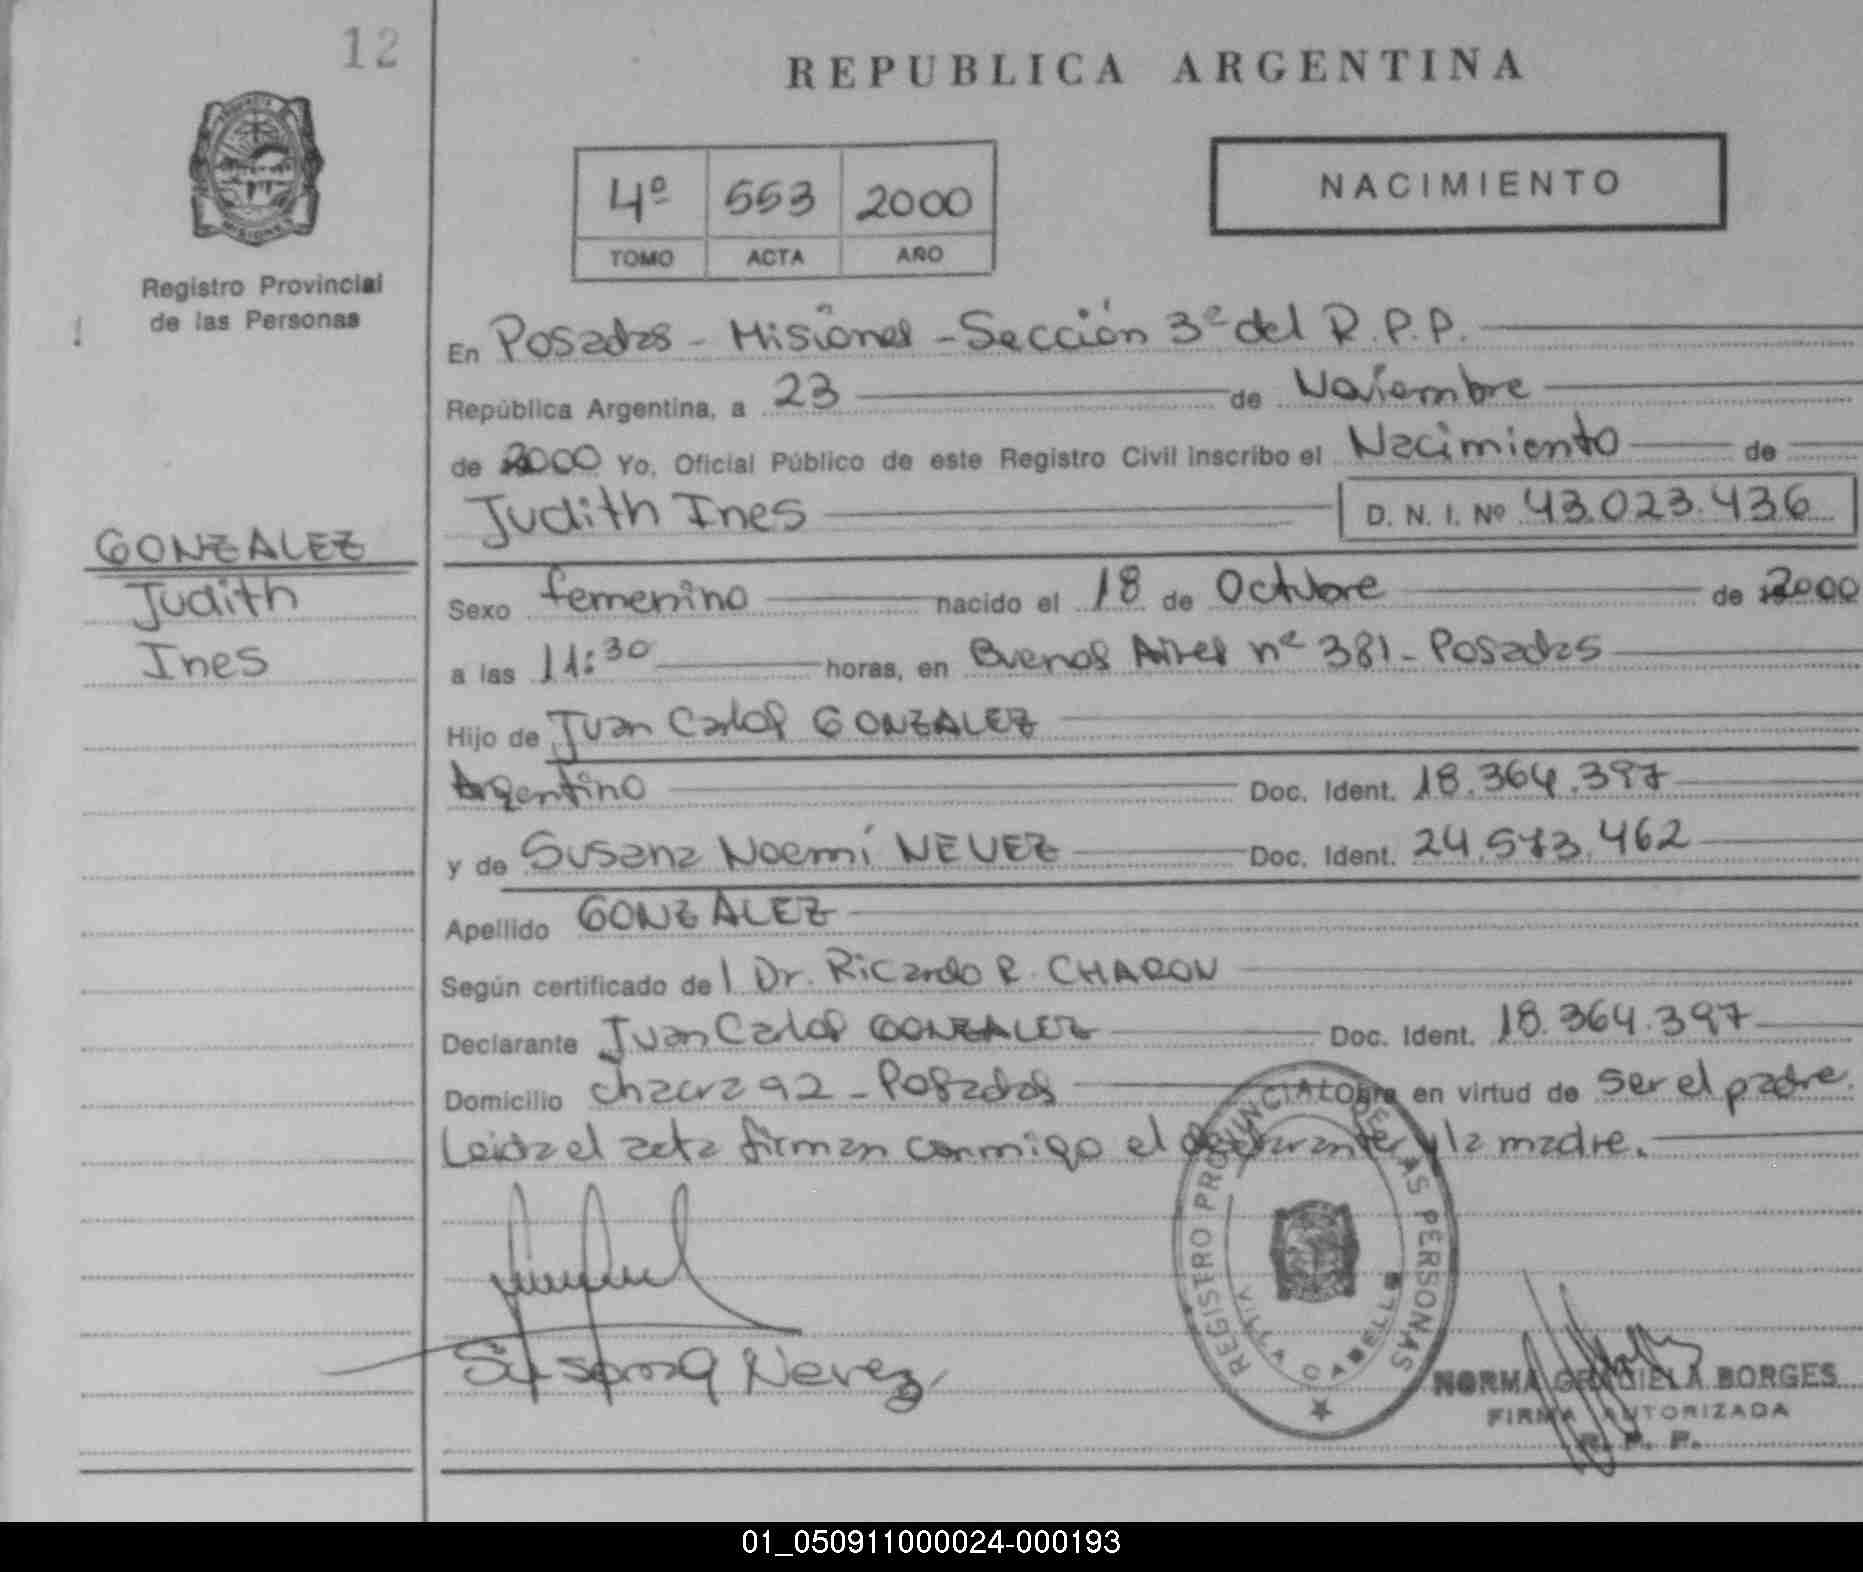 12
REPUBLICA ARGENTINA
NACIMIENTO
4º 553 2000
TOMO ACTA AÑO
Registro Provincial
de las Personas
En Posadas - Misiones - Sección 3ª del R.P.P.
República Argentina, a 23 de Noviembre
de 2000 Yo, Oficial Público de este Registro Civil inscribo el Nacimiento de
Judith Ines D. N. I. Nº 43.023.436
GONZALEZ
Judith
Ines
Sexo femenino nacido el 18 de Octubre de 2000
a las 11:30 horas, en Buenos Aires nº 381 - Posadas
Hijo de Juan Carlos GONZALEZ
Argentino Doc. Ident. 18.364.397
y de Susana Noemí NEVEZ Doc. Ident. 24.573.462
Apellido GONZALEZ
Según certificado del Dr. Ricardo R. CHARON
Declarante Juan Carlos GONZALEZ Doc. Ident. 18.364.397
Domicilio chacra 92 - Posadas Obra en virtud de ser el padre.
Leida el acta firman conmigo el declarante y la madre.
Susana Nevez
REGISTRO PROVINCIAL DE LAS PERSONAS
VILLA CABELLO
NORMA GRACIELA BORGES
FIRMA AUTORIZADA
R. P. P.
01_050911000024-000193